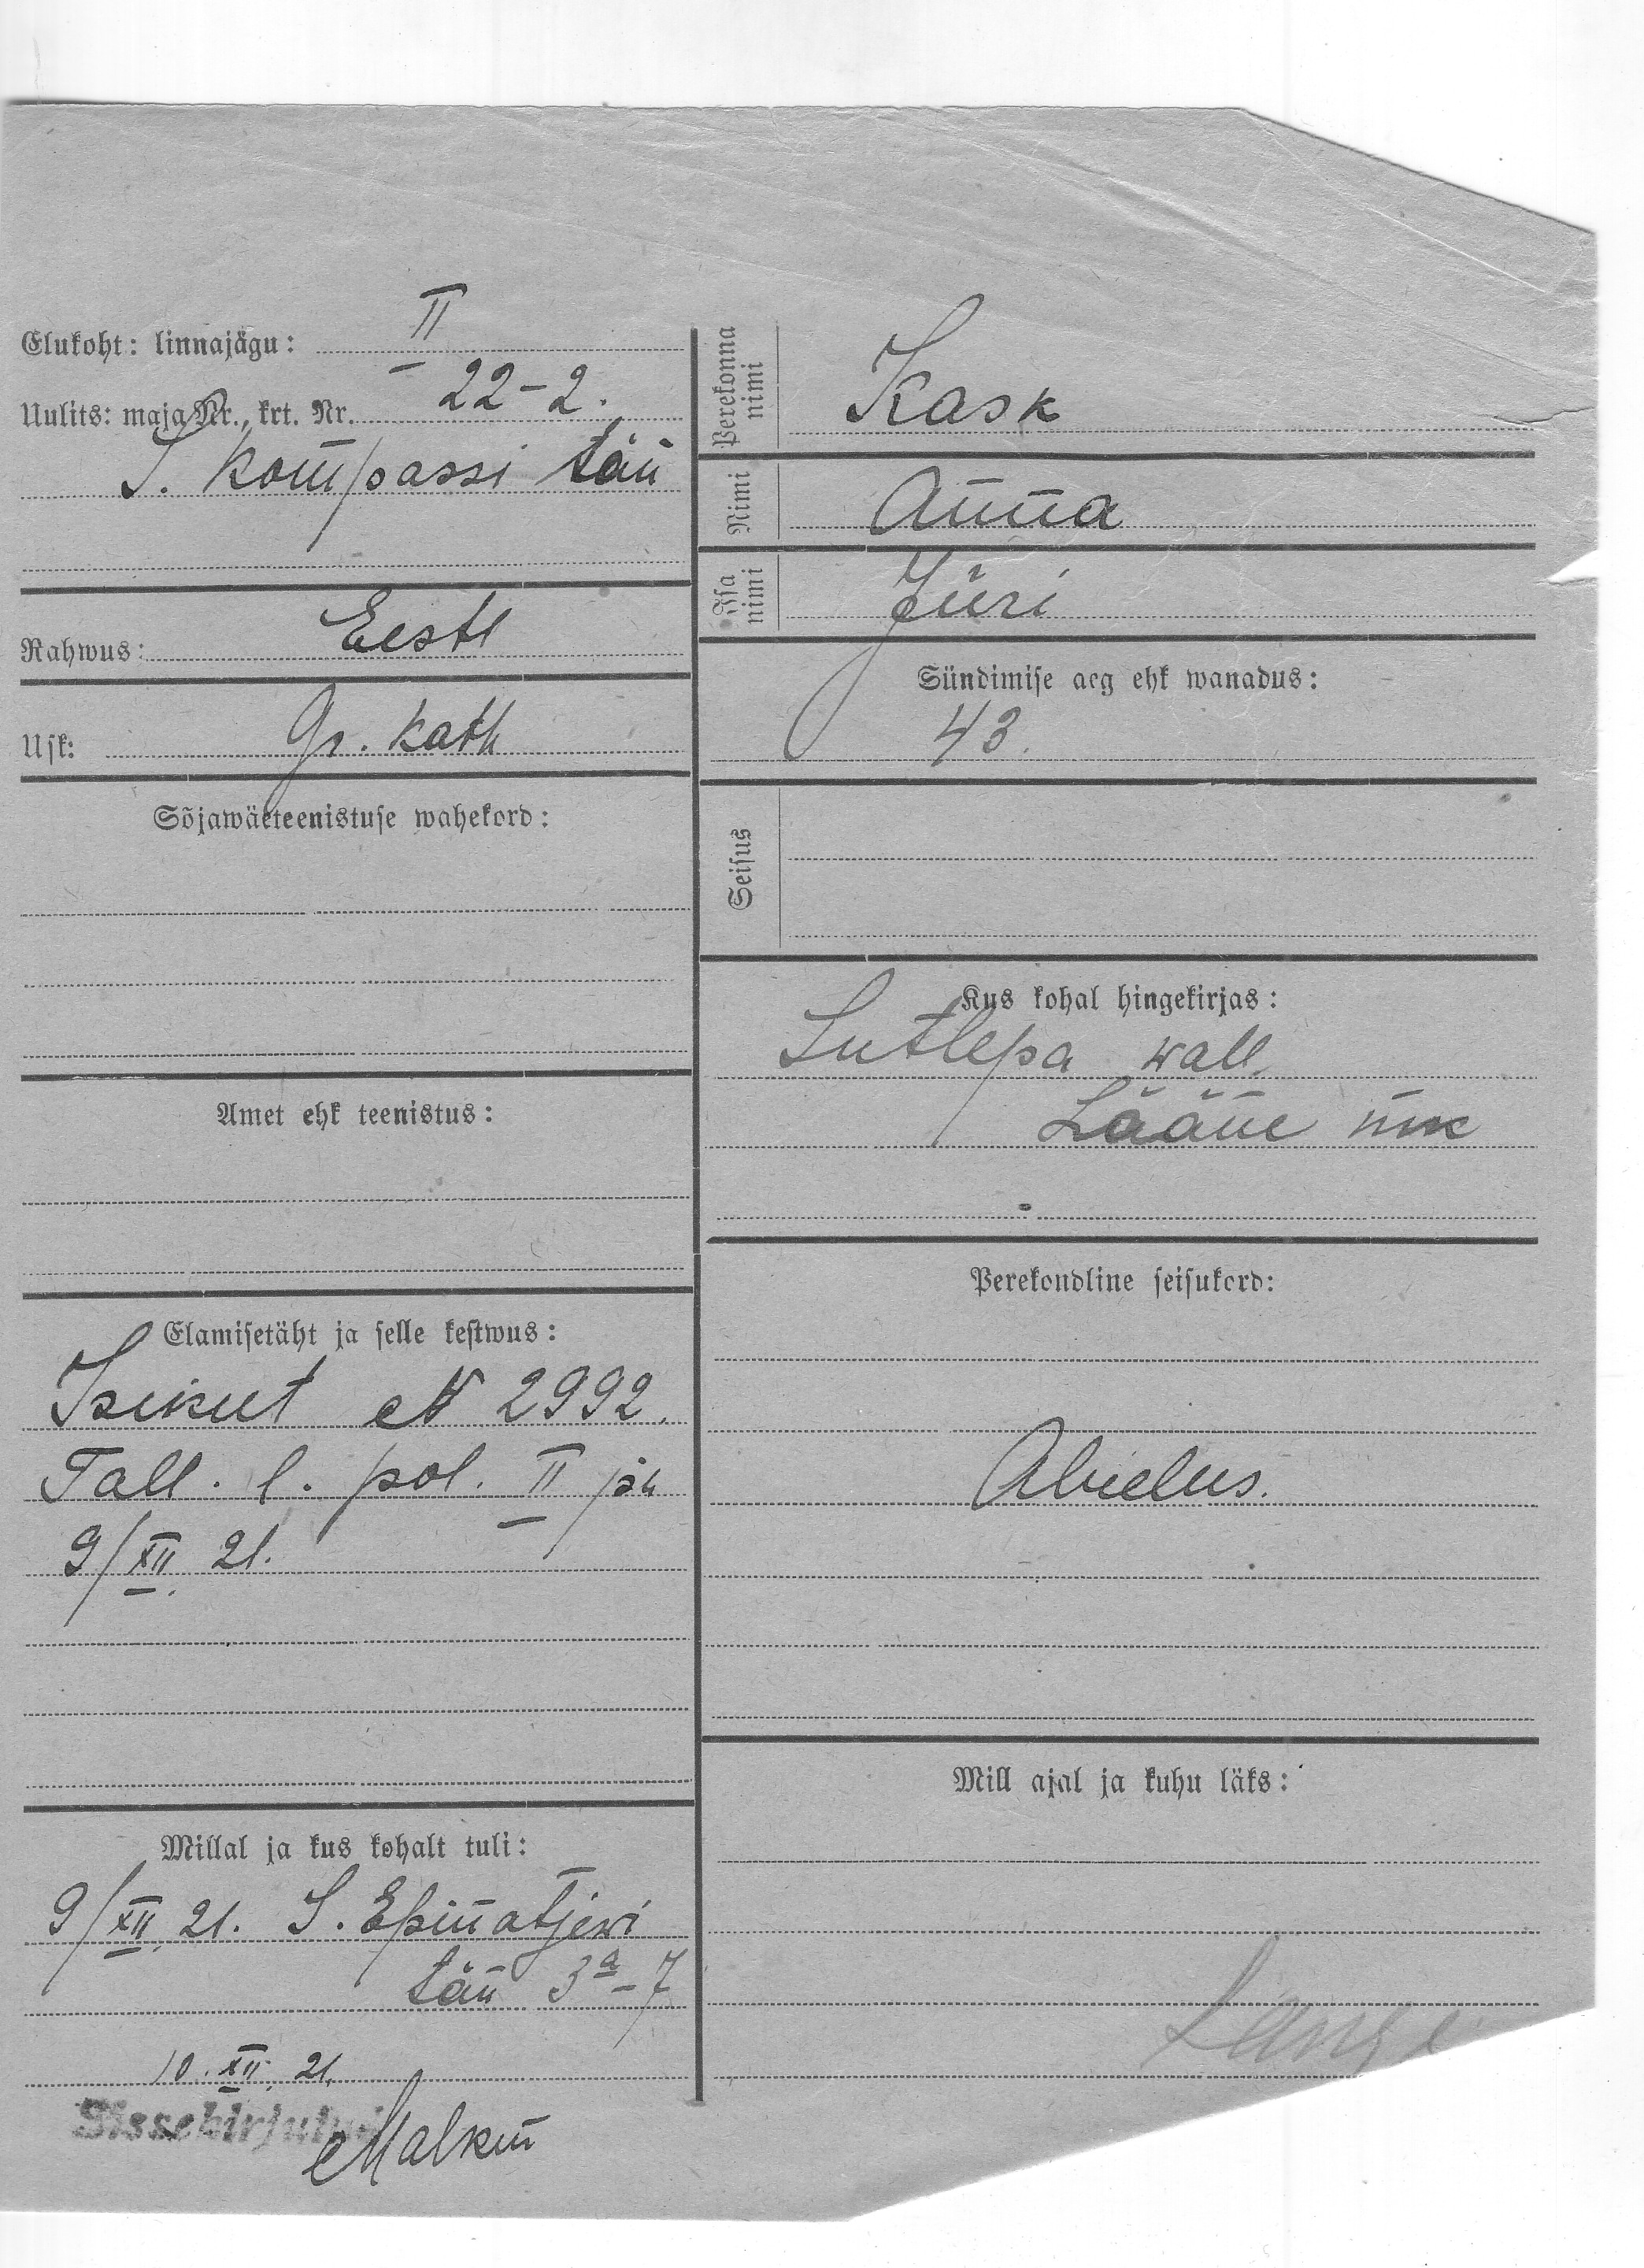 Elukoht: linnajägu: II
Uulits: maja Nr., krt. Nr. 22-2.
S. Kompassi tän
Rahwus: Eestl
Usk: Gr. Kath
Sõjawäeteenistuse wahekord:
Amet ehk teenistus:
Elamisetäht ja selle kestwus:
Isikut № 2992.
Tall. l. pol. II
9/XII 21.
Millal ja kus kohalt tuli:
9/XII 21. S.
tän 3a-7
10.XII.21.
Sissekirjutud
Perekonna nimi Kask
Nimi Anna
Isa nimi Jüri
Sündimise aeg ehk wanadus:
43.
Seisus
Kus kohal hingekirjas:
Sutlepa wall.
Lääne mk
Perekondline seisukord:
Abielus.
Mill ajal ja kuhu läks: